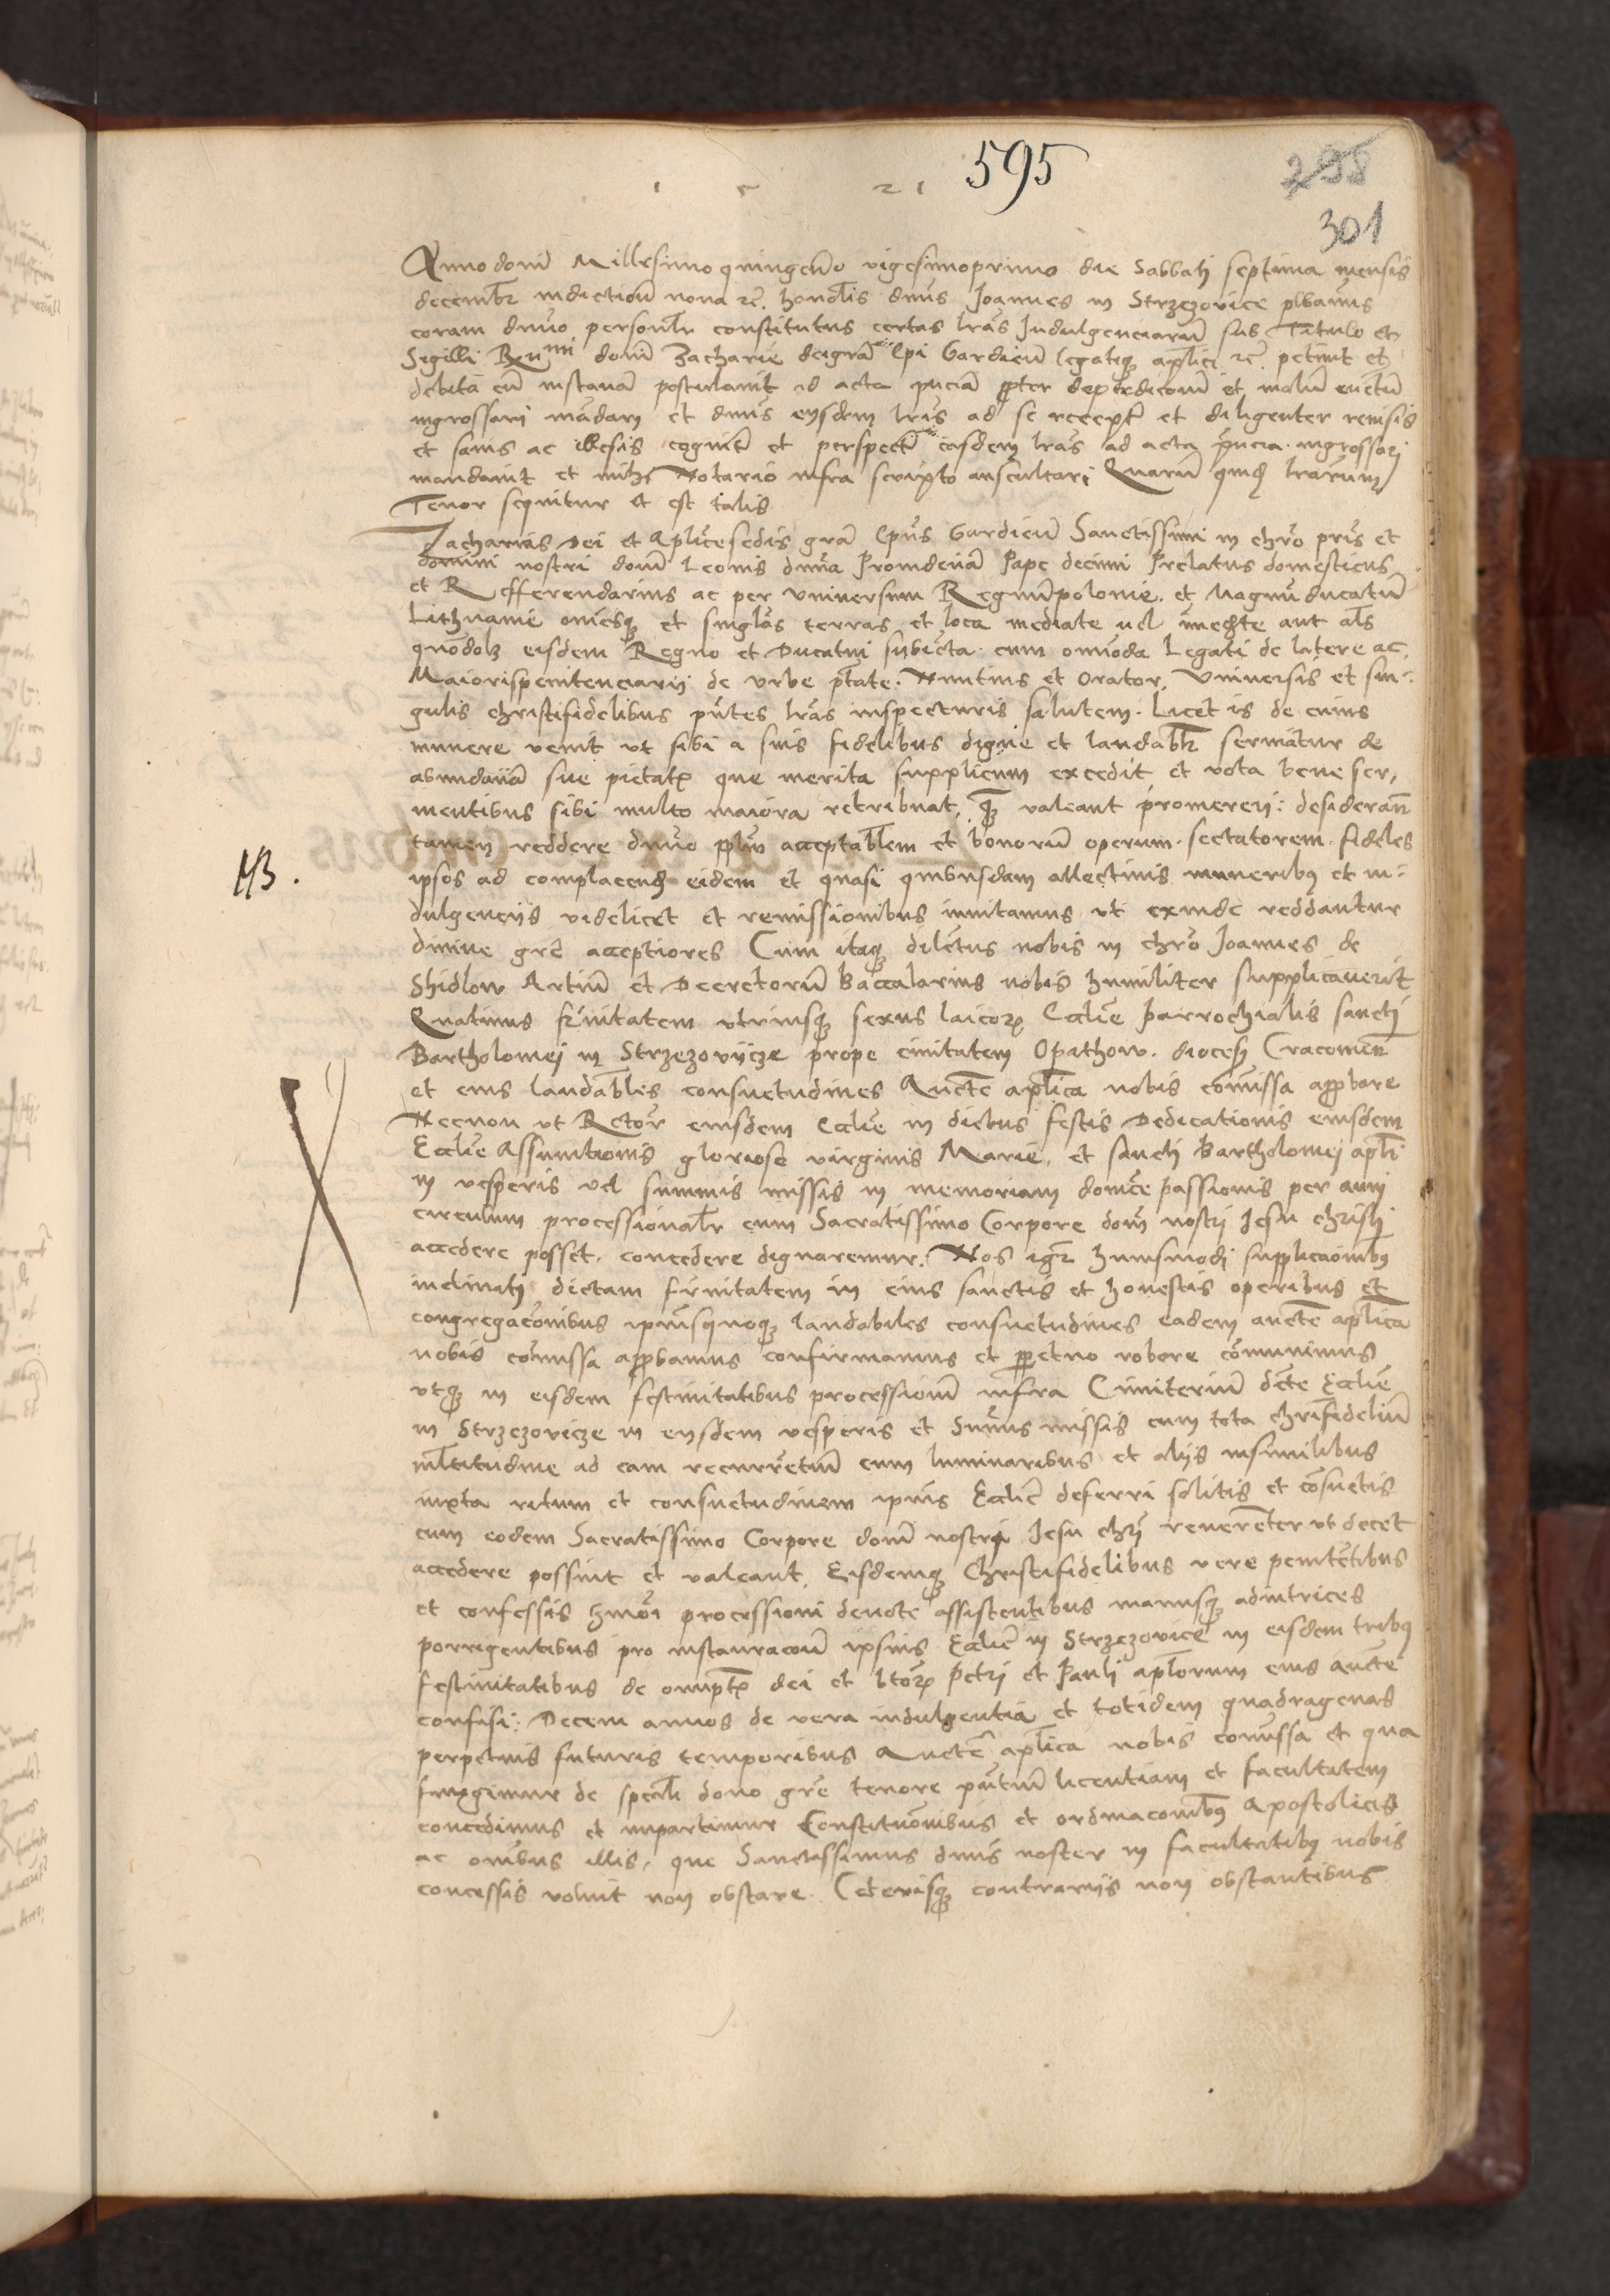 1 5 21 595 298
301
Anno domī Millesimo quingenͫo vigesimoprimo die Sabbatj septima mensis
decembr̄ indictioñ nona ꝛc̄. honolis dn̄us Joannes in Strzezovice plbanus
coram dnō personlr̄ constitutus certas lrās Indulgenciarū sub Titulo et
Sigilli Rn̄mi domī Zacharie deigrā Epi Gardieñ legatiqꝫ aplici ꝛc̄. petiuit et
debita cū instancia postulauit ad acta pn̄cia propter deperdicionē et malū euētū
ingrossari mādari et dn̄us eysdem lrīs ad se receptꝭ et diligenter reuisis
et sanis ac illesis cognitꝭ et perspectꝭ easdem lrās ad acta pn̄cia ingrossarj
mandauit et mihi Notario infra scripto auscultari Quarū quidē lrārum
Tenor sequitur et est talis
Zacharias Dei et Aplice sedis grā Epūs Gardieñ Sanctissimi in chrō prīs et
domini nostri domī Leonis diuīa Prouidencia Pape decimi Prelatus domesticus
et Refferendarius ac per vniuersum Regnum polonie. et Magnū ducatū
Lithuanie omēsqꝫ et singlās terras et loca mediate uel īmediate aut als
quōdolꝫ eisdem Regno et Ducatui subiecta cum omīoda Legati de latere ac
Maiorispenitenciarij de vrbe ptāte. Nuntius et Orator, Vniuersis et sin-
gulis christifidelibus pn̄tes lrās inspecturis salutem. Licet is de cuius
munere venit vt sibi a suis fidelibus digne et laudabilꝫ seruiatur de
abundantia sue pietatꝭ que merita supplicum excedit et vota bene ser,
uientibus sibi multo maiora retribuat, qꝫ valeant promererj: desiderañ
tamen reddere dnō pplm̄ acceptablem et bonorū operum sectatorem. fideles
NB.
ipsos ad complacendꝫ eidem et quasi quibusdam allectiuis muneribꝫ et in-
dulgencijs videlicet et remissionibus inuitamus vt exinde reddantur
diuine grē acceptiores Cum itaqꝫ dilectus nobis in chrō Joannes de
Shidlow Artiū et Decretorū Baccalarius nobis humiliter supplicauerit
Quatinus frīnitatem vtriusqꝫ sexus laicorꝫ Eccliē Parrochialis sancti
Bartholomej in Strzezovijcze prope ciuitatem Opathow. diocesꝭ Cracouieñ
et eius laudables consuetudines Auctē aplica nobis cōmissa approbare
Necnon vt Rector eiusdem Eccliē in diebus festis Dedicationis eiusdem
Eccliē Assumtionis gloriose virginis Marie. et sancti Bartholomej apli
in vesperis vel summis missis in memoriam domīce passionis per anni
circulum processionalr̄ cum Sacratissimo Corpore domī nostrj Jesu christi
accedere posset. concedere dignaremur. Nos igr̄ huiusmodi supplicacōibꝫ
inclinati dictam frīnitatem in eius sanctis et honestis operibus et
congregacōnibus ipiusquoqꝫ laudabiles consuetudines eadem auctē aplica
nobis cōmissa approbamus confirmamus et perpetuo robore cōmunimus
vtqꝫ in eisdem festiuitatibus processionū infra Cimiteriū dictē Eccliē
in Strzezovicze in eysdem vesperis et Summis missis cum tota chrifideliū
mltitudine ad eam recurrētiū cum luminaribus et alijs insimilibus
iuxta ritum et consuetudinem ipius Eccliē deferri solitis et cōsuetis
cum eodem Sacratissimo Corpore domī nostri Jesu chrī reuerenter vt decet
accedere possint et valeant, Eisdemqꝫ Christifidelibus vere penitētibus
et confessis hmōi processioni deuote assistentibus manusqꝫ adiutrices
porrigentibus pro instauracōne ipsius Eccliē in Strzezovice in eisdem tribꝫ
festiuitatibus de omīptꝭ dei et btōrꝫ Petri et Pauli aplorum eius auctē
confisi: Decem annos de vera indulgentia et totidem quadragenas
perpetuis futuris temporibus Auctē aplica nobis cōmissa et qua
fungimur de speali dono grē tenore pn̄tiū licentiam et facultatem
concedimus et impartimur Constituōnibus et ordinacōnibꝫ Apostolicis
ac omībus illis, que Sanctissimus dn̄us noster in facultatibꝫ nobis
concessis voluit non obstare. Ceterisqꝫ contrarijs non obstantibus